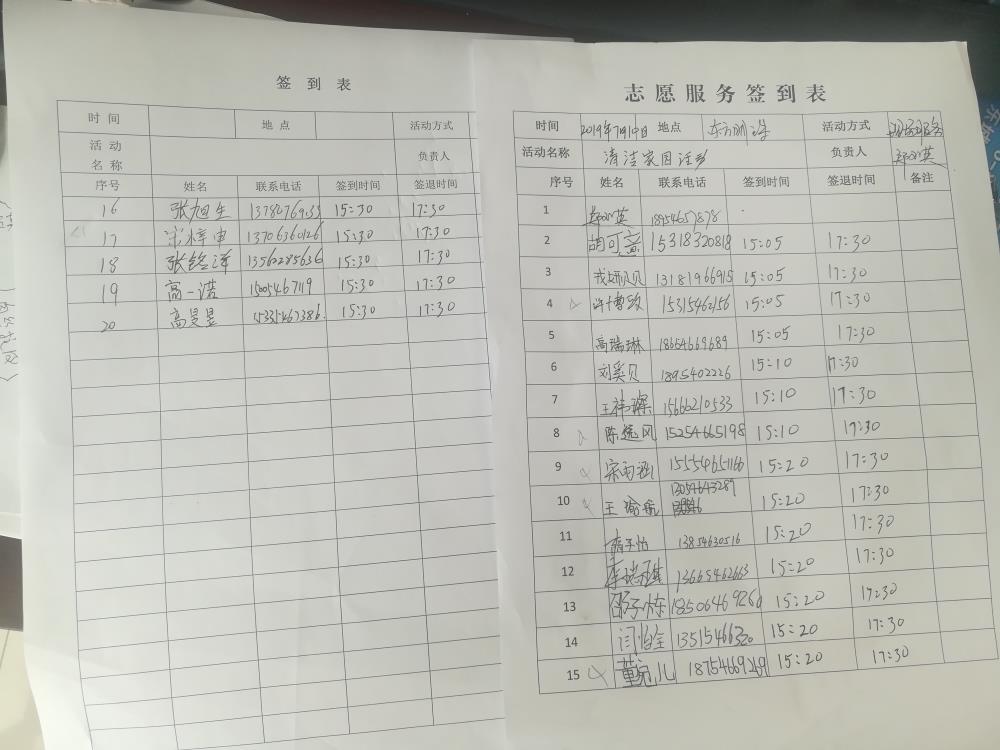 签到表
时间 地点 活动方式
活动名称 负责人
序号 姓名 联系电话 签到时间 签退时间
16 张旭生 15:30 17:30
17 宋梓申 13706360126 15:30 17:30
18 张铭泽 13562285636 15:30 17:30
19 高一诺 15005467119 15:30 17:30
20 高旻昱 15335467386 15:30 17:30
志愿服务签到表
时间 地点 东方明珠 活动方式 志愿服务
活动名称 清洁家园 负责人
序号 姓名 联系电话 签到时间 签退时间 备注
1 18954657878
2 胡可意 15318320818 15:05 17:30
3 13181966915 15:05 17:30
4 15315462156 15:05 17:30
5 高瑞琳 18654669689 15:05 17:30
6 刘奚贝 1895402226 15:10 17:30
7 王祎琛 15666210533 15:10 17:30
8 陈逸风 15254665198 15:10 17:30
9 宋雨涵 15554651166 15:20 17:30
10 王瑜航 13054643289 15:20 17:30
11 13854630516 15:20 17:30
12 李瑞琪 13665462663 15:20 17:30
13 邵子栋 15:20 17:30
14 闫怡全 15:20 17:30
15 董宛儿 15:20 17:30